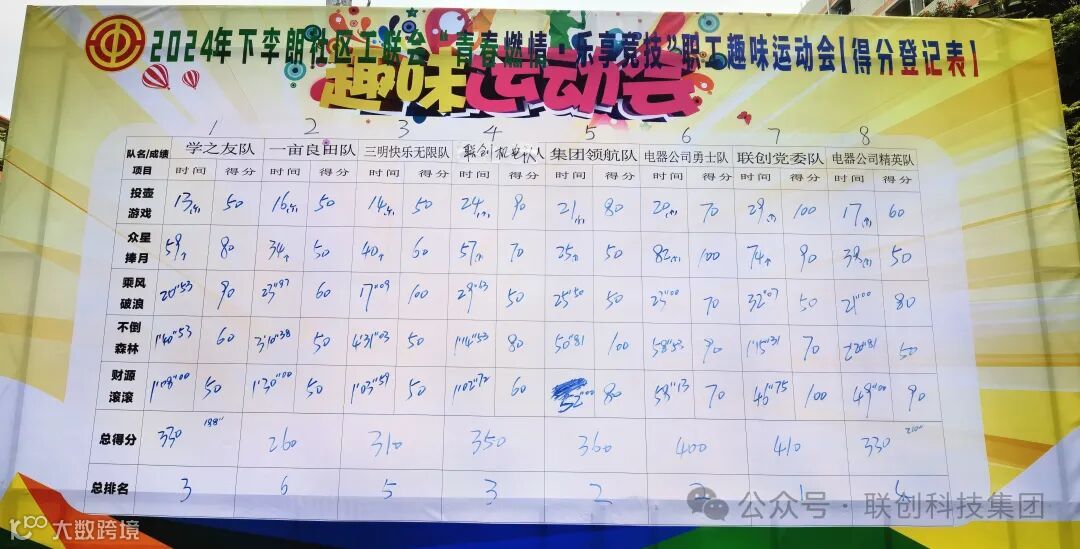 2024年下李朗社区工联会“青春燃情·乐享竞技”职工趣味运动会【得分登记表】
趣味运动会
1 2 3 4 5 6 7 8
队名/成绩 学之友队 一亩良田队 三明快乐无限队 联创机电队 集团领航队 电器公司勇士队 联创党委队 电器公司精英队
项目 时间 得分 时间 得分 时间 得分 时间 得分 时间 得分 时间 得分 时间 得分 时间 得分
投壶游戏 13 50 16 50 14 50 24 90 21 80 20 70 29 100 17 60
众星捧月 59 80 34 50 40 60 57 70 25 50 82 100 74 90 39 50
乘风破浪 20"53 90 23"97 60 17"09 100 29"63 50 25"50 50 23"00 70 32"07 50 21"00 80
不倒森林 1'40"53 60 3'10"38 50 4'31"03 50 1'14"53 80 50"81 100 58"53 90 1'15"31 70 2'20"81 50
财源滚滚 1'08"00 50 1'30"00 50 1'03"59 50 1'02"72 60 52"00 80 58"13 70 46"75 100 49"00 90
总得分 330 188" 260 310 350 360 400 410 330 210"
总排名 3 6 5 3 2 2 1
公众号·联创科技集团
大数跨境